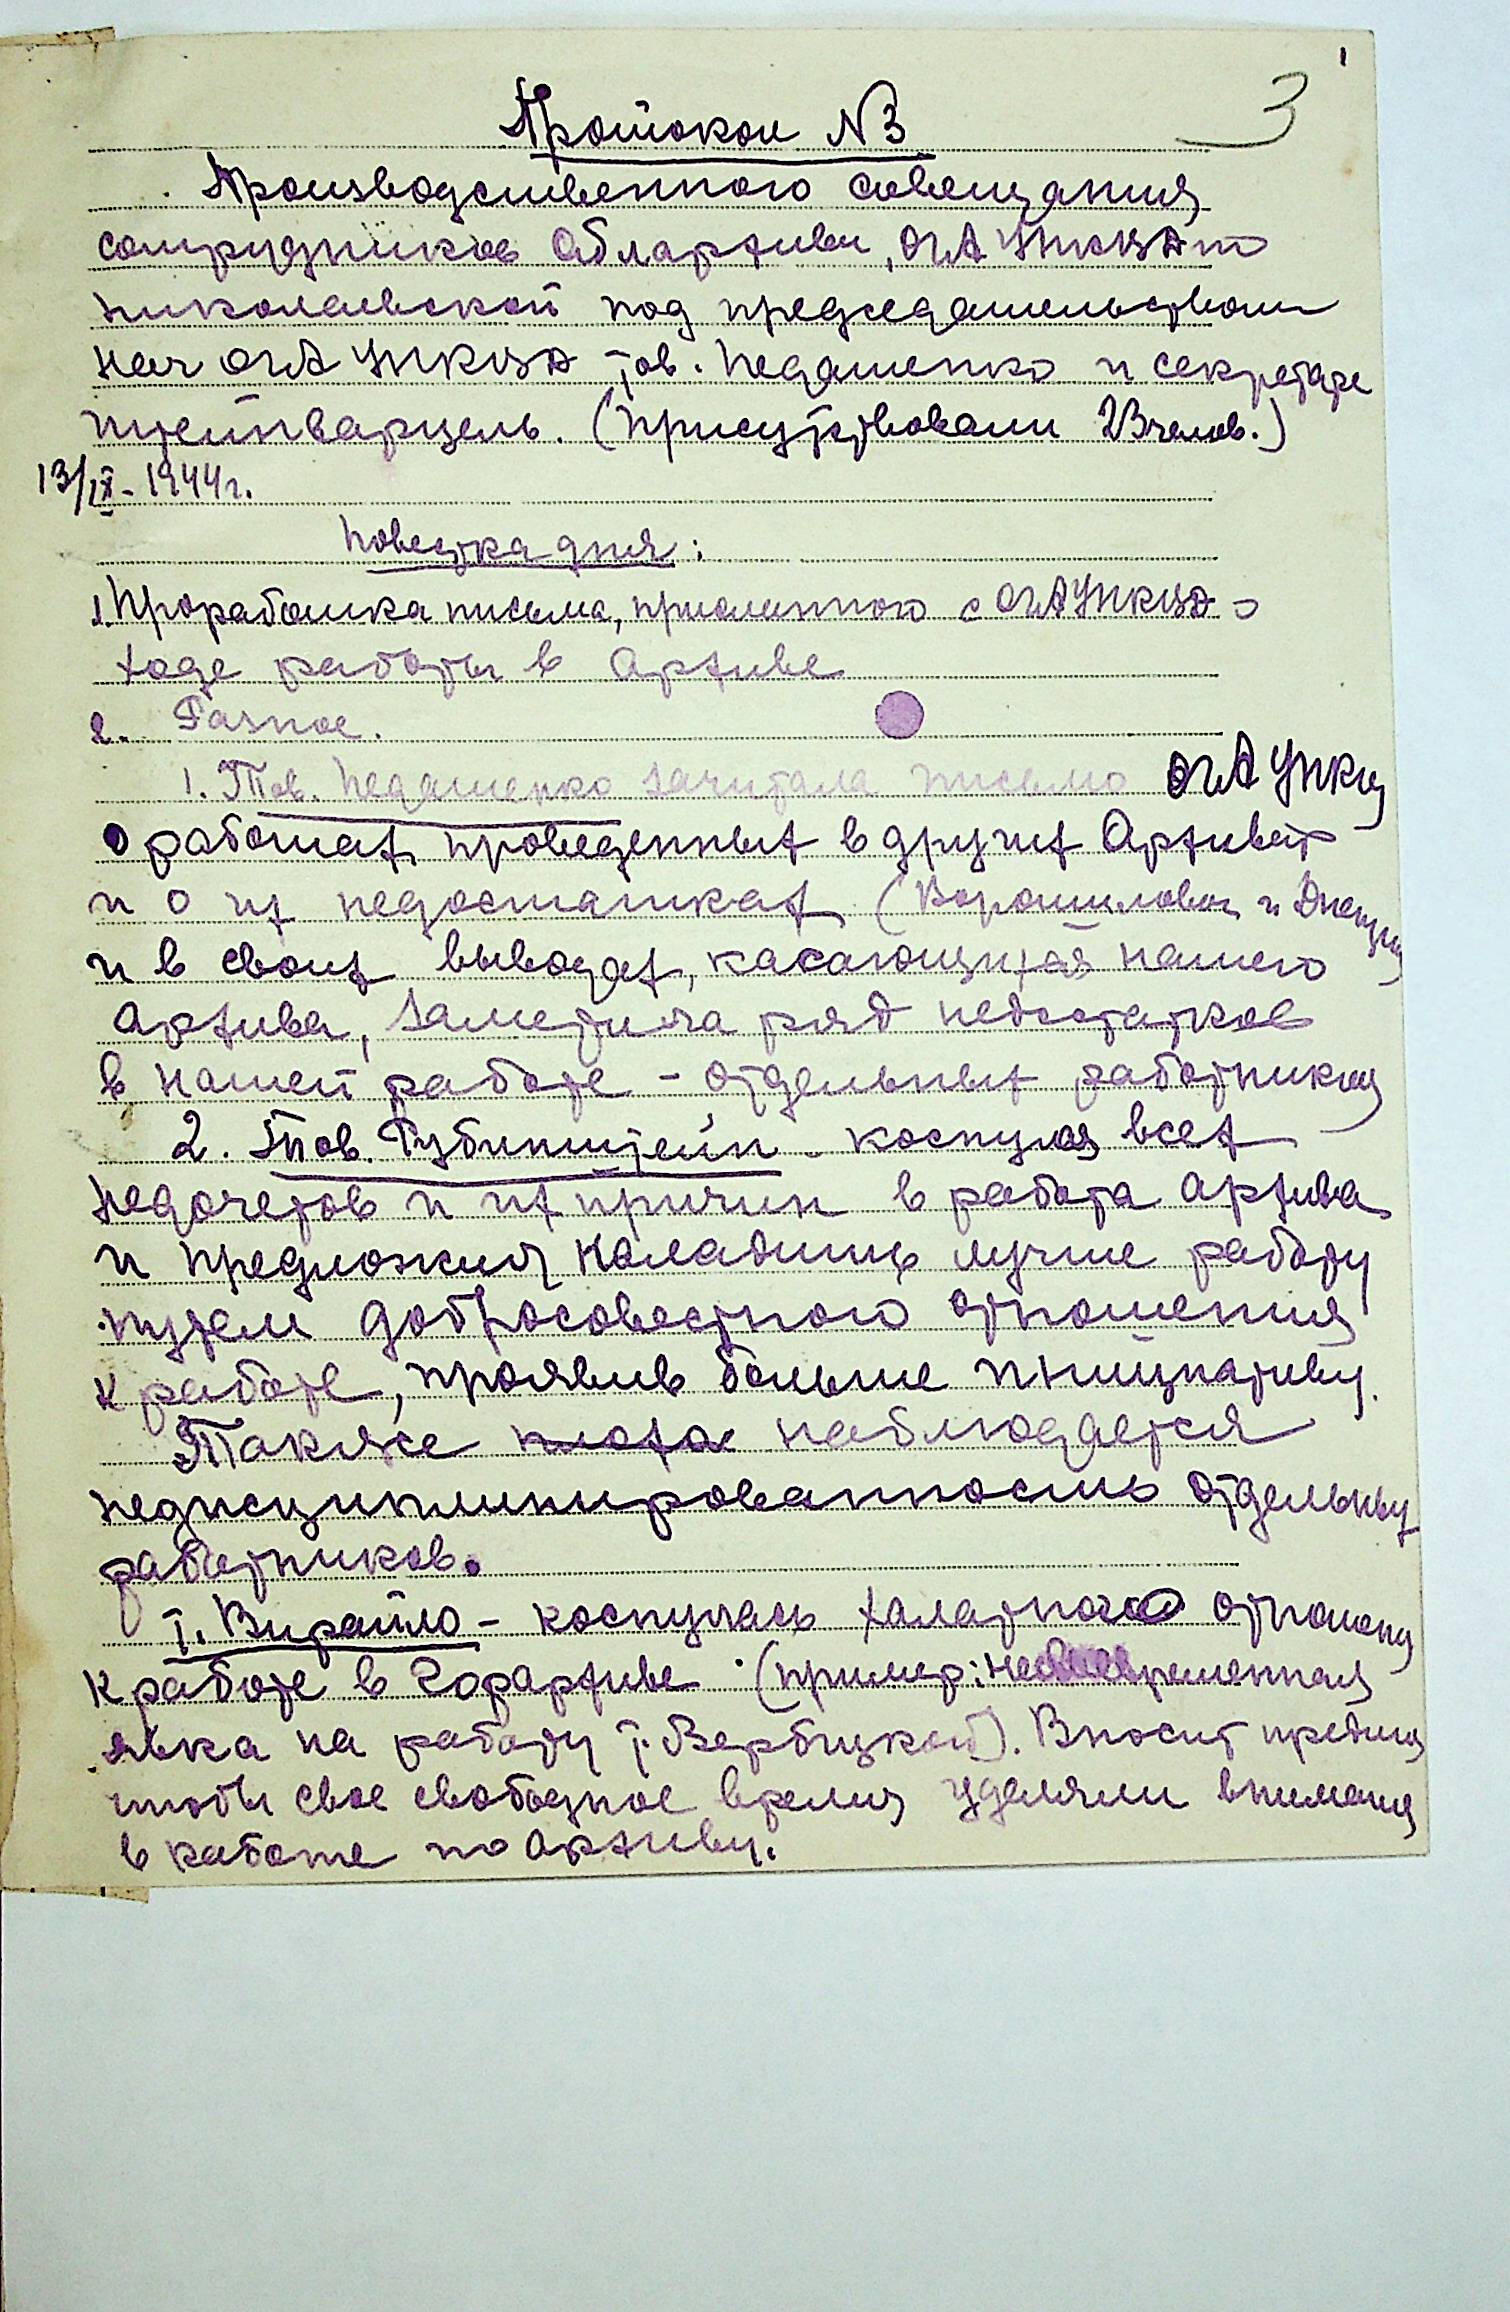 3
Протокол N 3
Производственного совещания
сотрудников Облархива, ОГА УНКВД по
николаевской под председательством
нач ОГА УНКВД тов. Недашенко и секретаре
Штейнварцель. (Присутствовали 23 челов.)
13/IX - 1944 г.
Повестка дня:
1. Проработка письма, присланного с ОГА УНКВД о
ходе работы в Архиве
2. Разное.
1. Тов. Недашенко зачитала письмо ОГА УНКВД
о работах, проведенных в других Архивах
и о их недостатках (Ворошиловск и
и в своих выводах, касающихся нашего
Архива, заметила ряд недостатков
в нашей работе - отдельных работников
2. Тов. Рубинштейн - коснулся всех
недочетов и их причин в работа архива
и предложил наладить лучше работу
путем добросовестного отношения
к работе, проявив больше инициативы.
Также плохая наблюдается
недисциплинированность отдельных
работников.
т. Вирайло - коснулась халатного отношения
к работе в Горархиве (пример: несвоевременная
явка на работу т. Вербицкой). Вносит предлож
чтобы свое свободное время уделяли внимания
в работе по архиву.